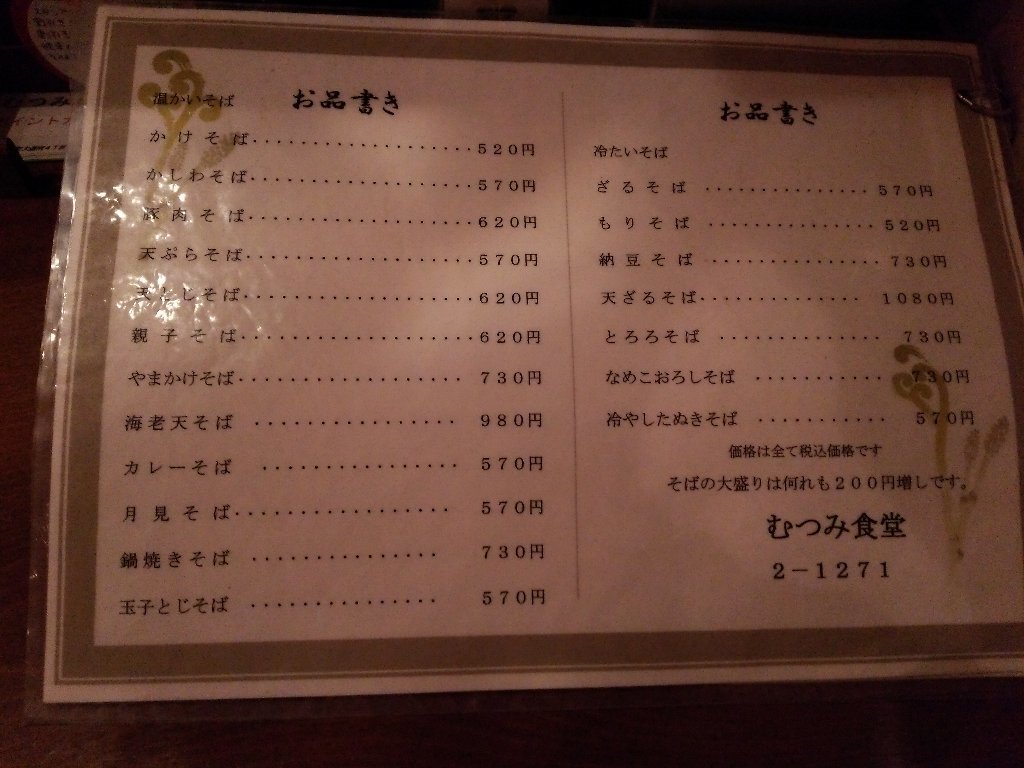 お品書き
温かいそば
かけそば....................520円
かしわそば....................570円
豚肉そば....................620円
天ぷらそば....................570円
天とじそば....................620円
親子そば....................620円
やまかけそば................... 730円
海老天そば ................ 980円
カレーそば .................. 570円
月見そば................... 570円
鍋焼きそば ................ 730円
玉子とじそば ................ 570円
お品書き
冷たいそば
ざるそば ............... 570円
もりそば ............... 520円
納豆そば ................ 730円
天ざるそば.............. 1080円
とろろそば .............. 730円
なめこおろしそば ............ 730円
冷やしたぬきそば ............ 570円
価格は全て税込価格です
そばの大盛りは何れも200円増しです。
むつみ食堂
2-1271